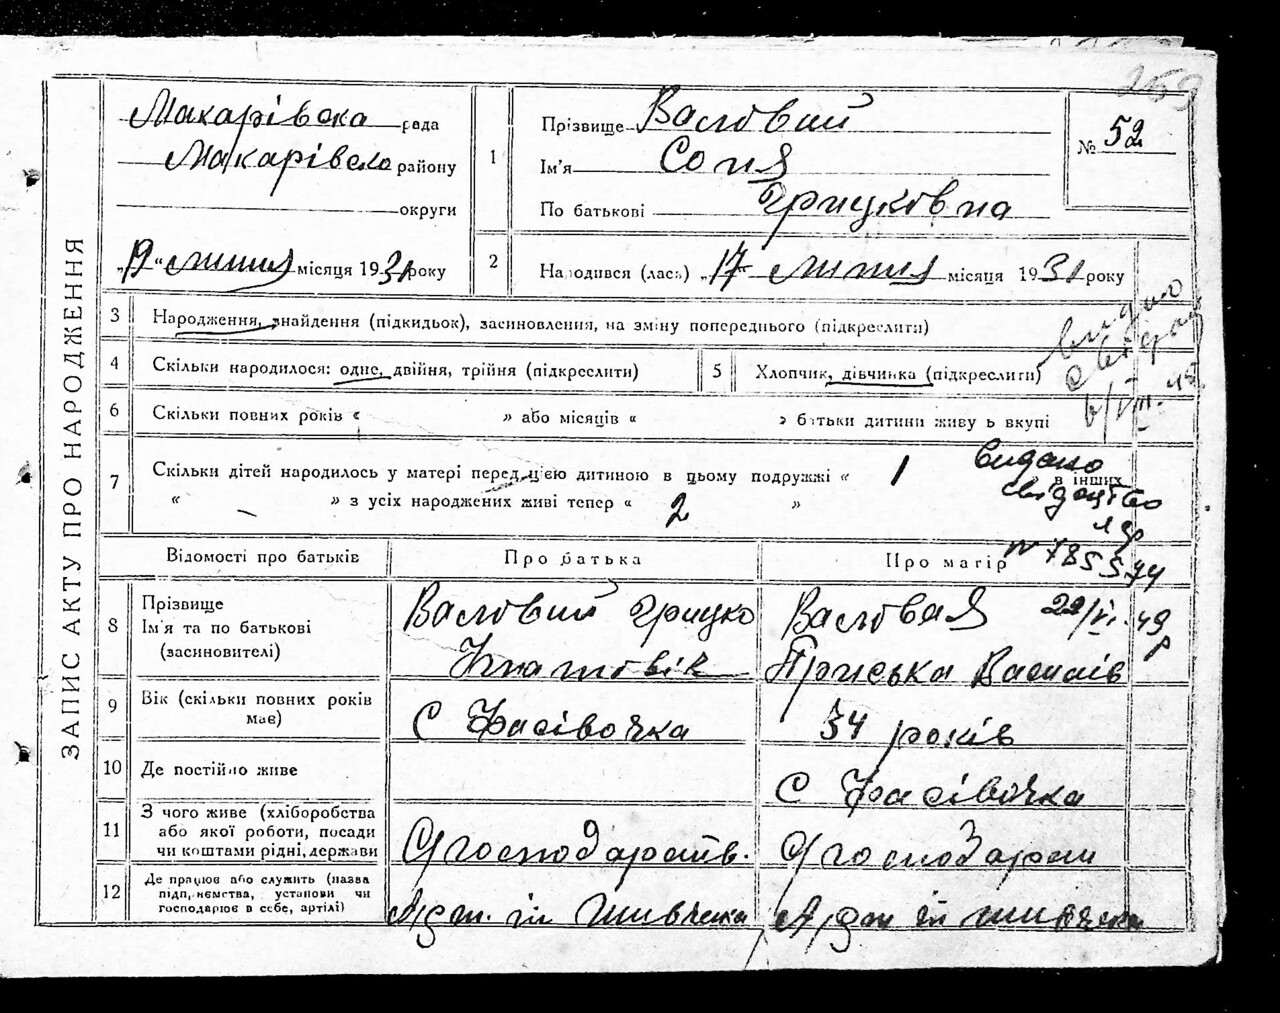 259
ЗАПИС АКТУ ПРО НАРОДЖЕННЯ
Макарівска рада
Макарівсko району
округи
„19“ липня місяця 1931 року
1
Прізвище Валовий
Ім'я Соня
По батькові Грицковна
№ 52
2
Народився (лась) „17“ липня місяця 1931 року
3
Народження, знайдення (підкидьок), засиновлення, на зміну попереднього (підкреслити)
4
Скільки народилося: одне, двійня, трійня (підкреслити)
5
Хлопчик, дівчинка (підкреслити)
6
Скільки повних років « » або місяців « » батьки дитини живу ь вкупі
7
Скільки дітей народилось у матері перед цією дитиною в цьому подружжі « 1 в інших
« – » з усіх народжених живі тепер « 2 »
видано
6/VIII-45
Видано
свідоцтво
№ 785574
22/VI-49 р
Відомості про батьків
Про батька
Про матір
8
Прізвище
Ім'я та по батькові
(засиновителі)
Валовий Грицко
Валовая
Приська Василів
9
Вік (скільки повних років
має)
С Фасівочка
34 років
10
Де постійно живе
С Фасівочка
11
З чого живе (хліборобства
або якої роботи, посади
чи коштами рідні, держави
Сгосподарств.
Сгосподарств
12
Де працює або служить (назва
підприємства, установи чи
господарює в себе, артілі)